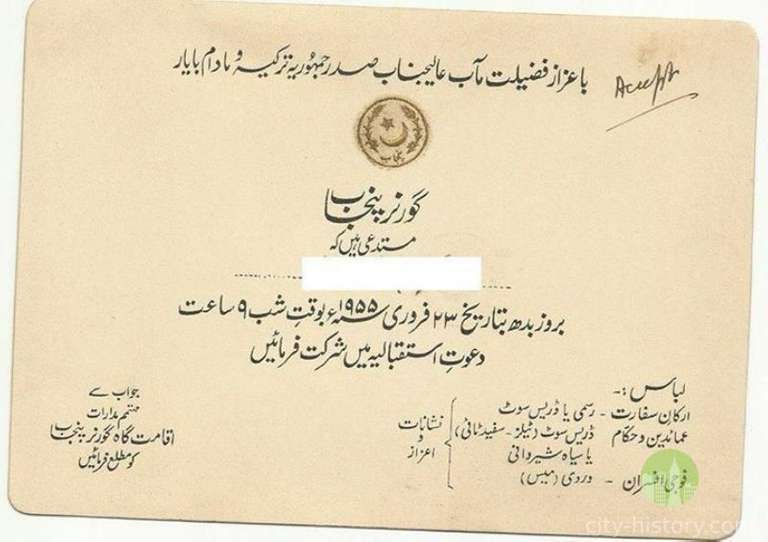 باعزاز فضیلت مآب عالیجناب صدر جمہوریۂ ترکیہ و مادام بایار
Accept
پنجاب
گورنر پنجاب
مستدعی ہیں کہ
بروز بدھ بتاریخ ۲۳ فروری ۱۹۵۵ء بوقتِ شب ۹ ساعت
دعوتِ استقبالیہ میں شرکت فرمائیں
لباس :-
ارکانِ سفارت - رسمی یا ڈریس سوٹ
عمائدین و حکام ڈریس سوٹ (ٹیلز - سفید ٹائی)
یا سیاہ شیروانی
فوجی افسران - وردی (میس)
نشانات
و
اعزاز
جواب سے
مہتمم مدارات
اقامت گاہ گورنر پنجاب
کو مطلع فرمائیں
city-history.com